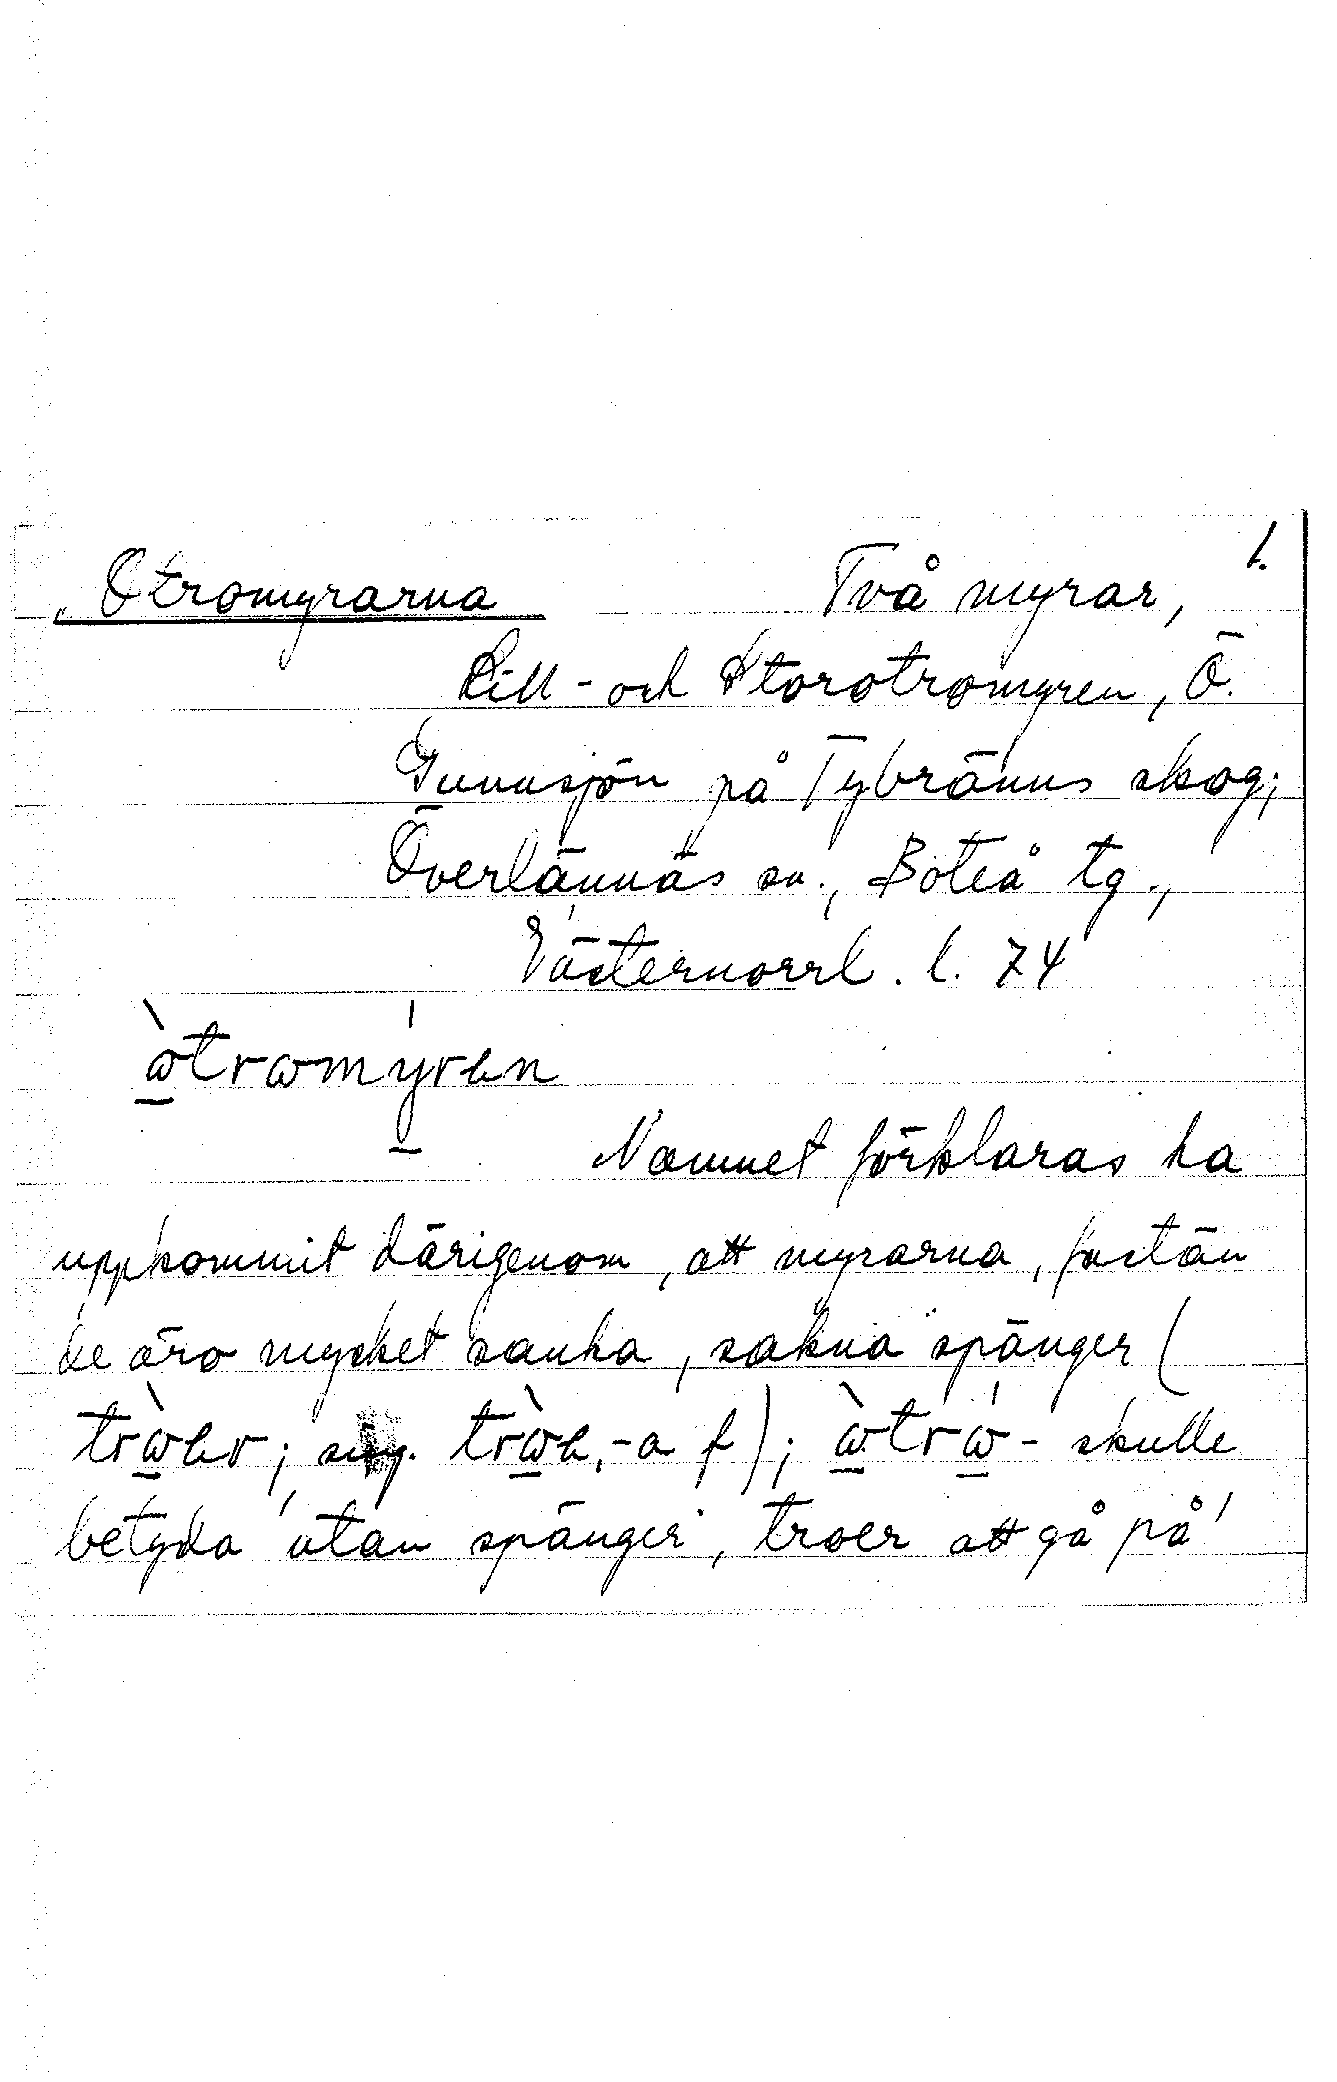 1.
Otromyrarna Två myrar,
Lill- och Storotromyren, Ö.
Gunnsjön på Tybränns skog;
Överlännäs sn., Boteå tg.,
Västernorrl. l. 74
ὼtrωmýrən
Namnet förklaras ha
uppkommit därigenom, att myrarna, fastän
de äro mycket sanka, sakna spänger (
trὼər; sing. trὼə, -a f); ὼtrώ- skulle
betyda 'utan spänger, troer att gå på'